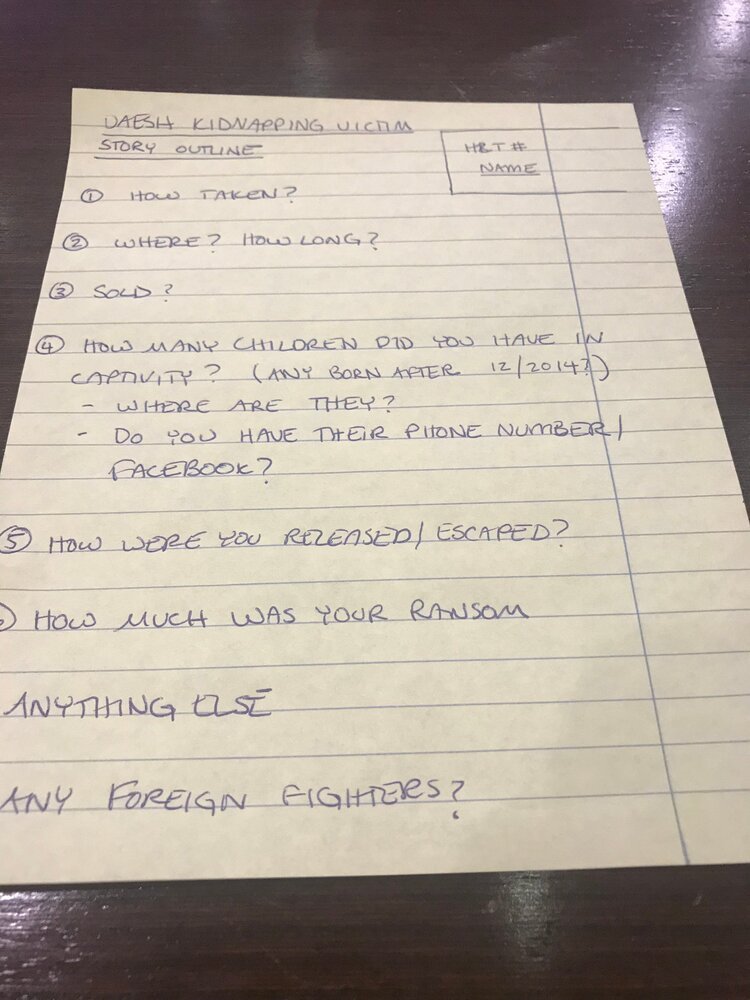 DAESH KIDNAPPING VICTIM
STORY OUTLINE
HRT #
NAME
① HOW TAKEN?
② WHERE? HOW LONG?
③ SOLD?
④ HOW MANY CHILDREN DID YOU HAVE IN
CAPTIVITY? (ANY BORN AFTER 12/2014?)
- WHERE ARE THEY?
- DO YOU HAVE THEIR PHONE NUMBER/
FACEBOOK?
⑤ HOW WERE YOU RELEASED/ESCAPED?
HOW MUCH WAS YOUR RANSOM
ANYTHING ELSE
ANY FOREIGN FIGHTERS?